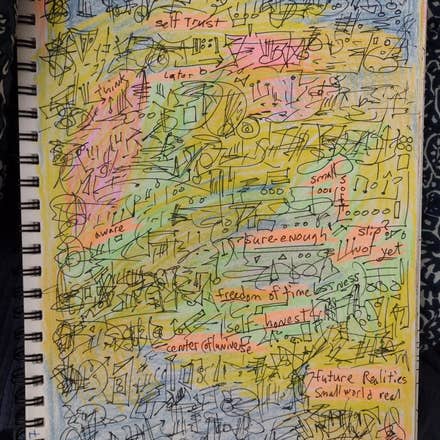 self Trust
Later
think
small
aware
sure enough
slip
Not yet
freedom of time
self
honest
center of universe
future Realities
Small world real